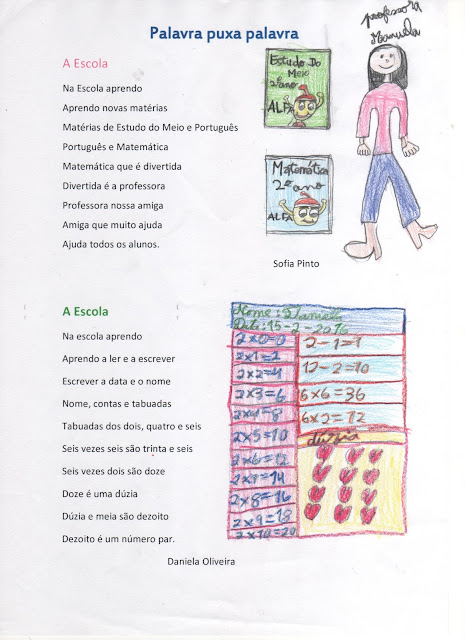 Palavra puxa palavra
professora
Manuela
A Escola
Na Escola aprendo
Aprendo novas matérias
Matérias de Estudo do Meio e Português
Português e Matemática
Matemática que é divertida
Divertida é a professora
Professora nossa amiga
Amiga que muito ajuda
Ajuda todos os alunos.
Estudo Do
Meio
2ºano
ALFA
Matemática
2º ano
ALFA
Sofia Pinto
A Escola
Na escola aprendo
Aprendo a ler e a escrever
Escrever a data e o nome
Nome, contas e tabuadas
Tabuadas dos dois, quatro e seis
Seis vezes seis são trinta e seis
Seis vezes dois são doze
Doze é uma dúzia
Dúzia e meia são dezoito
Dezoito é um número par.
Daniela Oliveira
Nome: Daniela
Data: 15-2-2016
2x0=0
2x1=2
2x2=4
2x3=6
2x4=8
2x5=10
2x6=12
2x7=14
2x8=16
2x9=18
2x10=20
2-1=1
12-2=10
6x6=36
6x2=12
dúzia